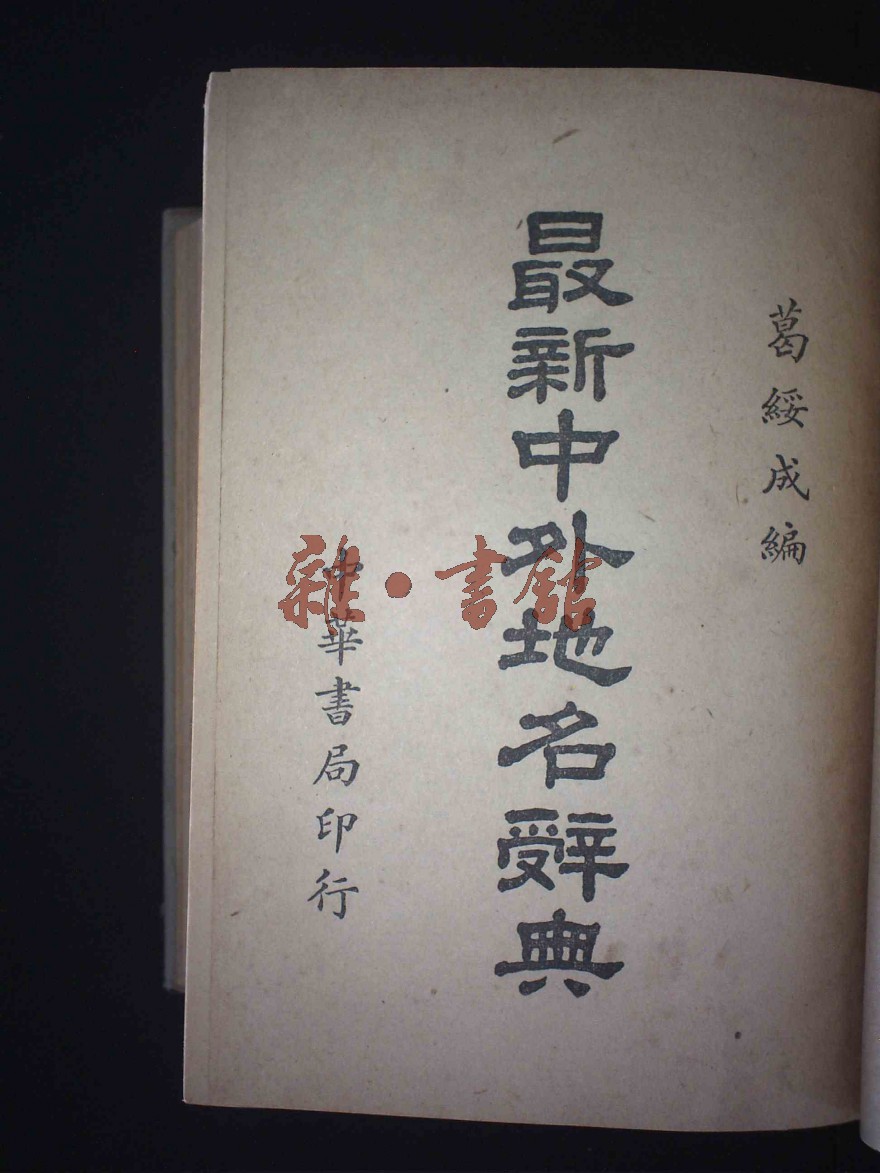 葛綏成編
最新中外地名辭典
中華書局印行
雜·書館